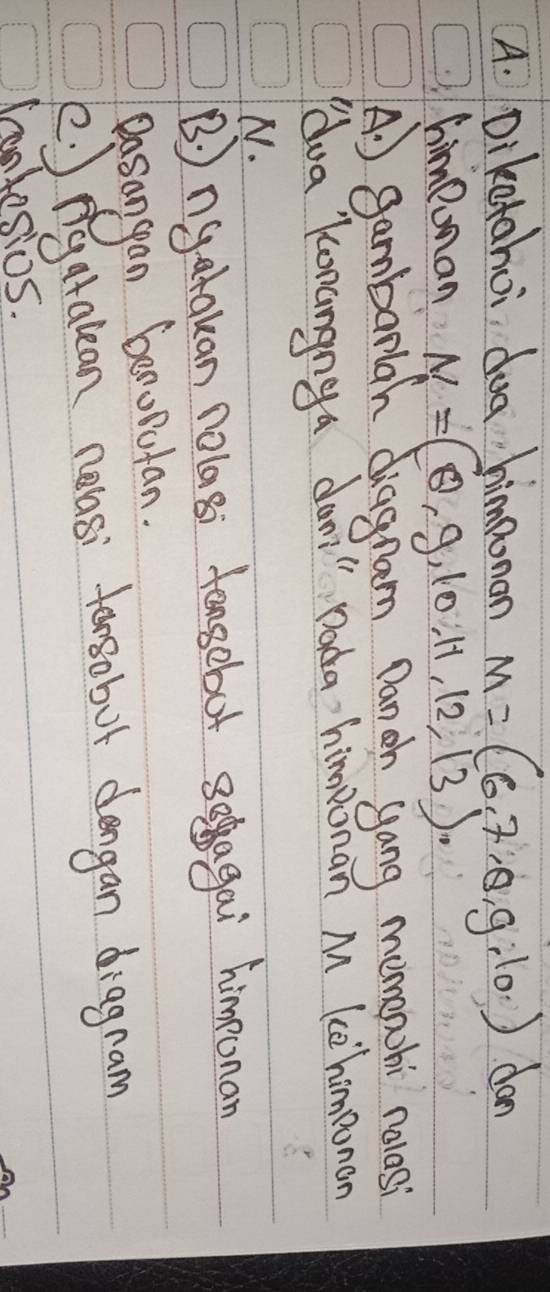 A. Diketahui dua himpunan M = (6, 7, 8, 9, 10) dan
himpunan N = (8, 9, 10, 11, 12, 13).
A.) gambarlah diagram panah yang memenuhi relasi
"dua kurangnya dari" pada himpunan M ke himpunan
N.
B.) nyatakan relasi tersebut sebagai himpunan
pasangan berurutan.
C.) nyatakan relasi tersebut dengan diagram
kartesius.